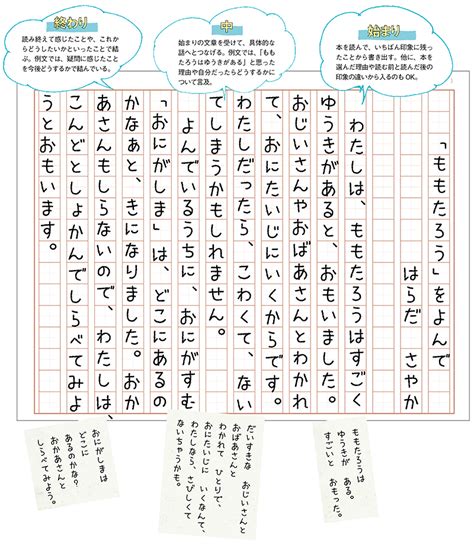 始まり
本を読んで、いちばん印象に残っ
たことから書き出す。他に、本を
選んだ理由や読む前と読んだ後の
印象の違いから入るのもOK。
中
始まりの文章を受けて、具体的な
話へとつなげる。例文では、「もも
たろうはゆうきがある」と思った
理由や自分だったらどうするかに
ついて言及。
終わり
読み終えて感じたことや、これか
らどうしたいかといったことで結
ぶ。例文では、疑問に感じたこと
を今後どうするかで結んでいる。
「ももたろう」をよんで
はらだ さやか
わたしは、ももたろうはすごく
ゆうきがあると、おもいました。
おじいさんやおばあさんとわかれ
て、おにたいじにいくからです。
わたしだったら、こわくて、ない
てしまうかもしれません。
よんでいるうちに、おにがすむ
「おにがしま」は、どこにあるの
かなぁと、きになりました。おか
あさんもしらないので、わたしは、
こんどとしょかんでしらべてみよ
うとおもいます。
ももたろうは
ゆうきが ある。
すごいと おもった。
だいすきな おじいさんと
おばあさんと
わかれて ひとりで、
おにたいじに いくなんて、
わたしなら、さびしくて
ないちゃうかも。
おにがしまは
どこに
あるのかな?
おかあさんと
しらべてみよう。